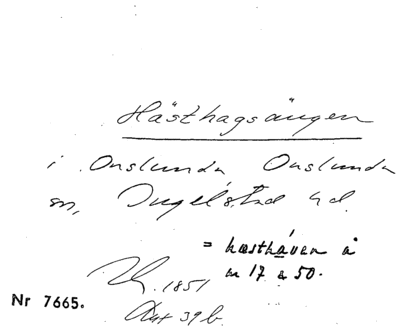 Hästhagsängen
i Onslunda, Onslunda
sn, Ingelstad hd.
= hæstháven å
m 17 a 50.
1851
Akt 39 b.
Nr 7665.